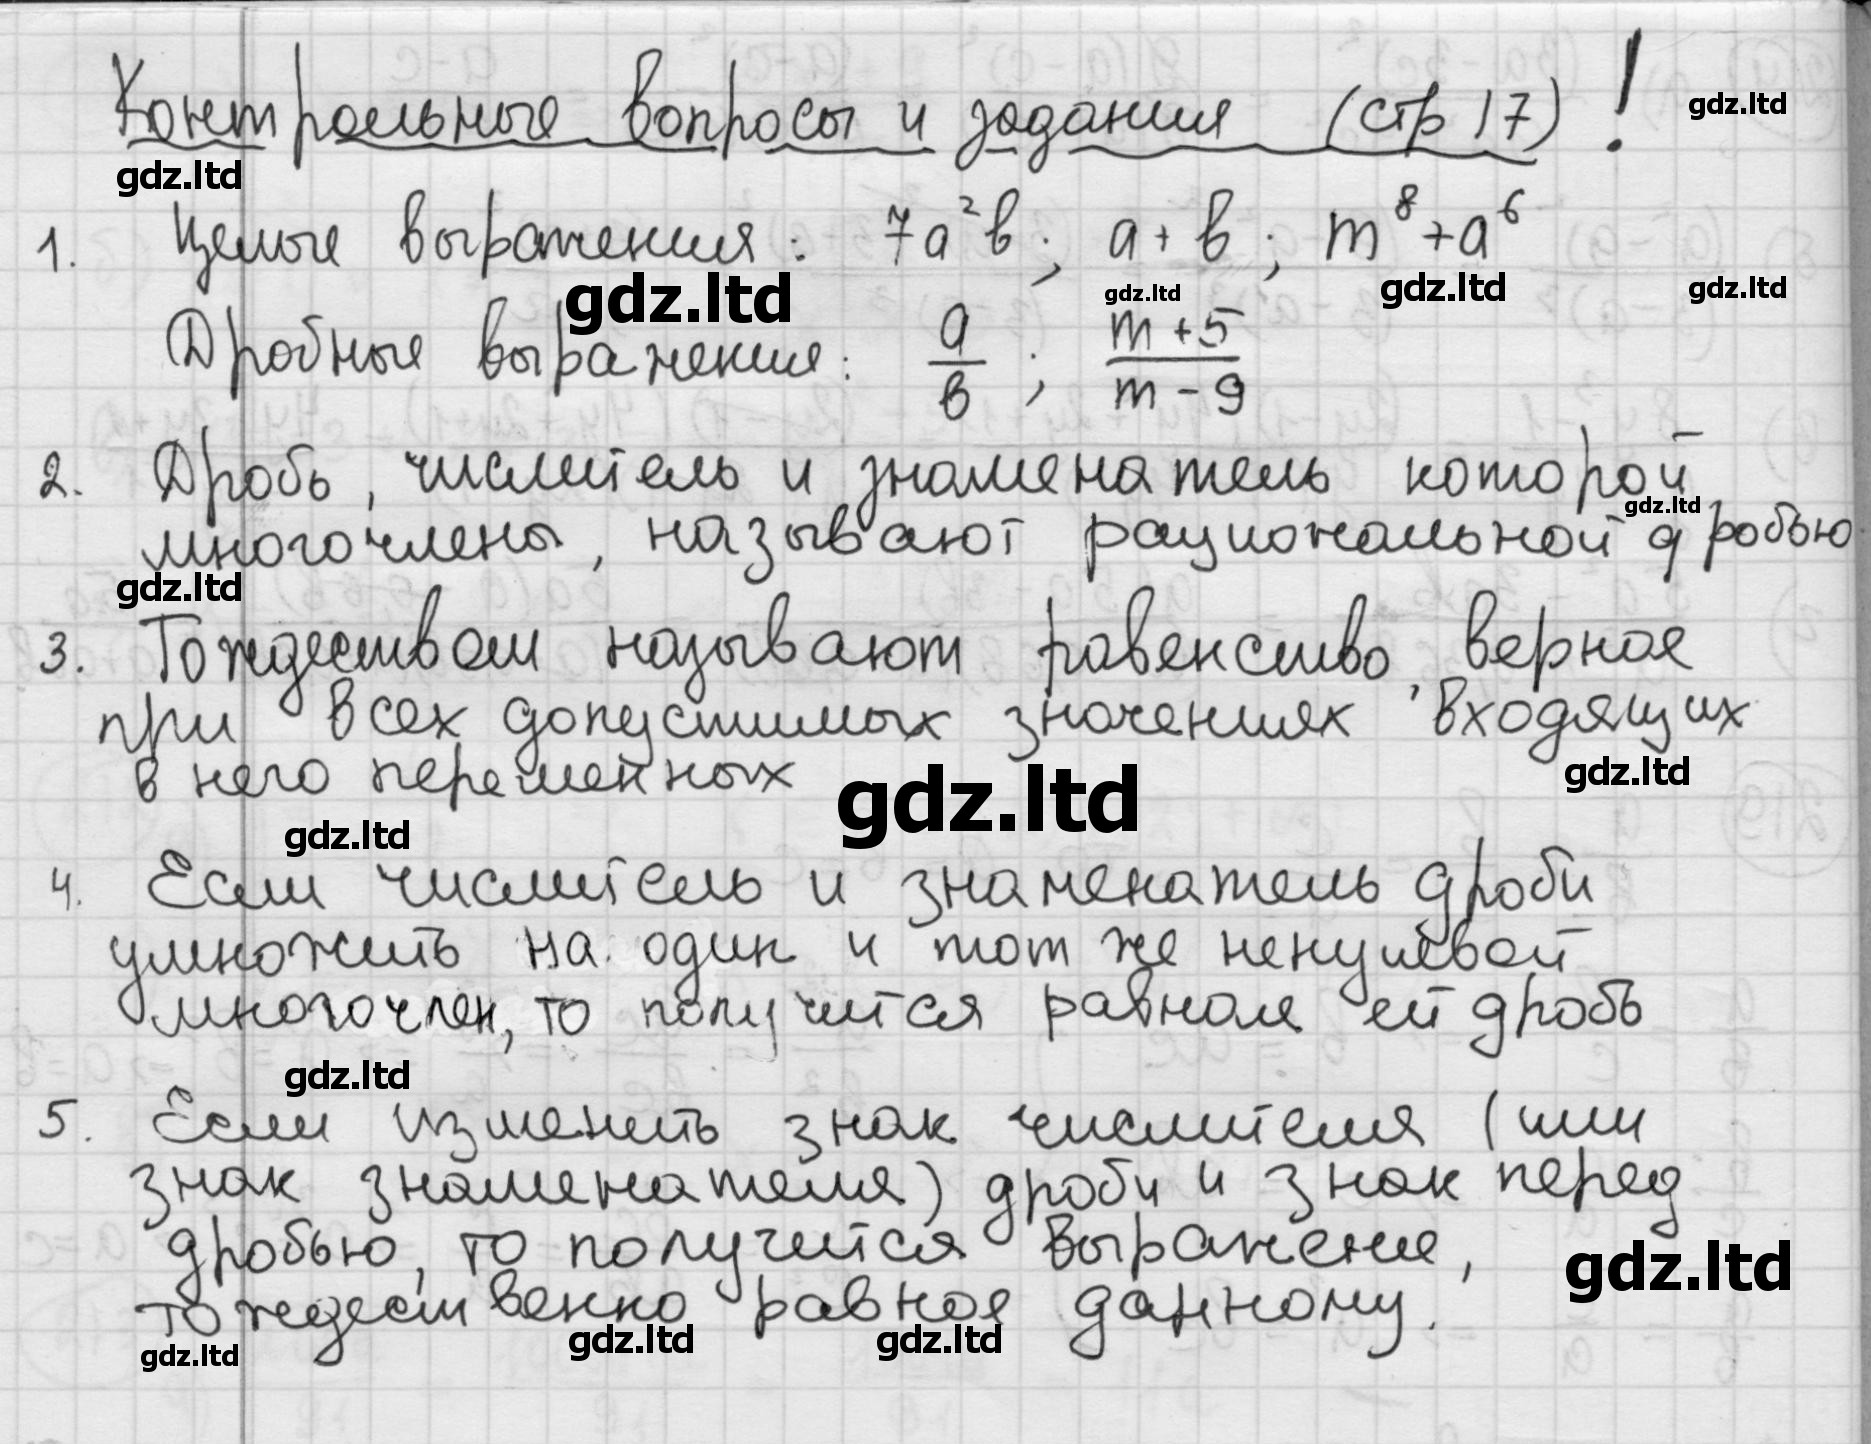 Контрольные вопросы и задания (стр 17) !
gdz.ltd
gdz.ltd
1. Целые выражения: 7a²b; a+b; m⁸+a⁶
gdz.ltd gdz.ltd gdz.ltd gdz.ltd
Дробные выражения: a/b; (m+5)/(m-9)
2. Дробь, числитель и знаменатель которой
gdz.ltd
многочлены, называют рациональной дробью
gdz.ltd
3. Тождеством называют равенство, верное
при всех допустимых значениях входящих
в него переменных
gdz.ltd gdz.ltd gdz.ltd
4. Если числитель и знаменатель дроби
умножить на один и тот же ненулевой
многочлен, то получится равная ей дробь
gdz.ltd
5. Если изменить знак числителя (или
знак знаменателя) дроби и знак перед
дробью, то получится выражение,
gdz.ltd
тождественно равное данному.
gdz.ltd gdz.ltd gdz.ltd